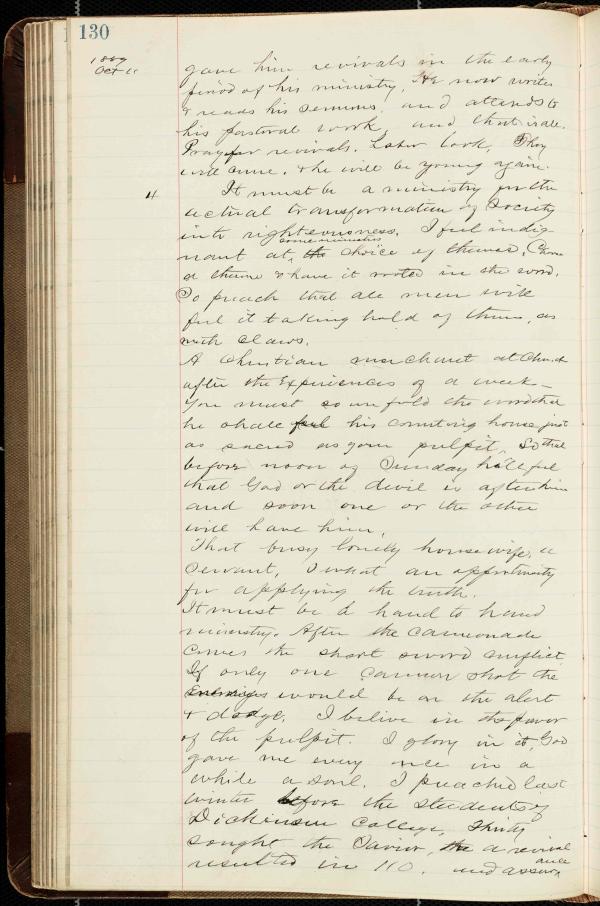 130
1889
Oct 11
gave him revivals in the early
period of his ministry. He now writes
& reads his sermons and attends to
his pastoral work, and that is all.
Pray for revivals. Labor look, They
will come. & he will be young again.
4 It must be a ministry for the
actual transformation of Society
into righteousness. I feel indig-
some ministers
nant at, the choice of themes. Choose
a theme & have it rooted in the word.
So preach that all men will
feel it taking hold of them, as
with claws.
A Christian merchant at Church
after the Experiences of a week—
You must so unfold the word that
he shall feel his counting house just
as sacred as your pulpit. So that
before noon of Sunday he'll feel
that God or the devil is after him
and soon one or the other
will have him.
That busy lonely housewife, a
Servant, O what an opportunity
for applying the truth.
It must be a hand to hand
ministry. After the cannonade
comes the short sword conflict.
If only one cannon shot the
Enemies would be on the alert
& dodge. I belive in the power
of the pulpit. I glory in it God
gave me every once in a
while a soul. I preached last
winter before the students of
Dickinson College, Thirty
sought the Savior, the a revival
resulted in 110. and assurance